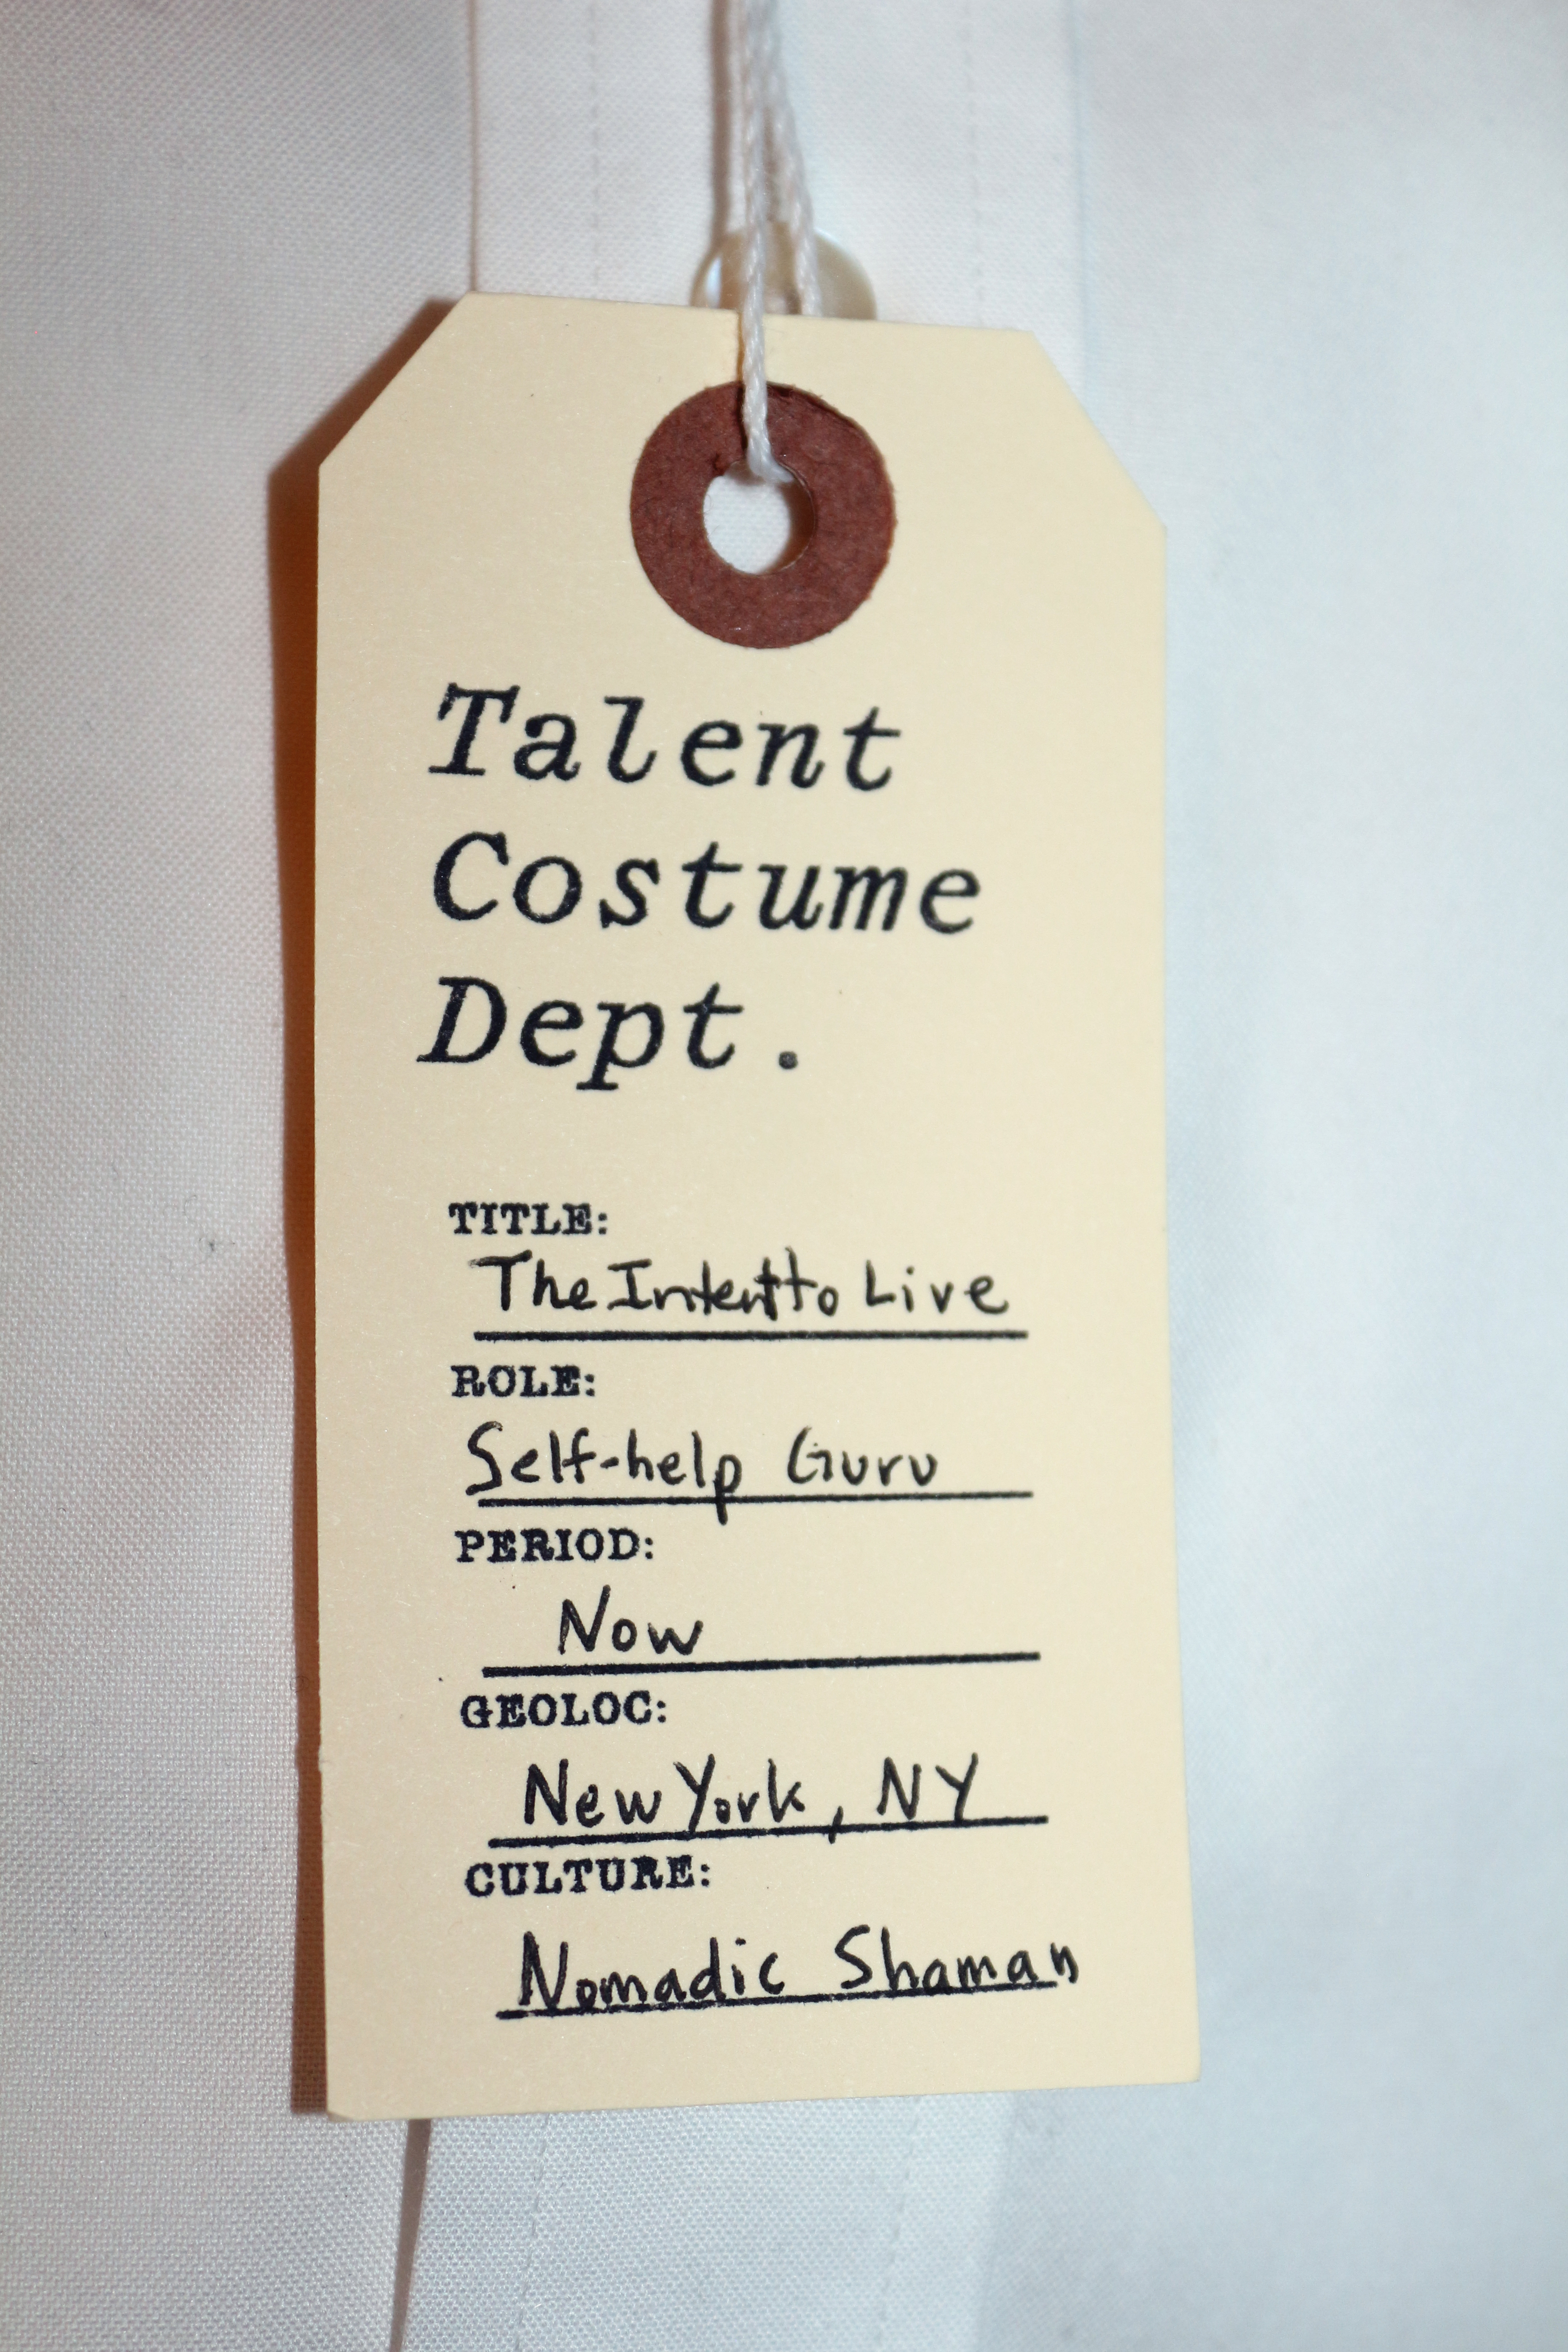 Talent
Costume
Dept.
TITLE:
The Intent to Live
ROLE:
Self-help Guru
PERIOD:
Now
GEOLOC:
New York, NY
CULTURE:
Nomadic Shaman